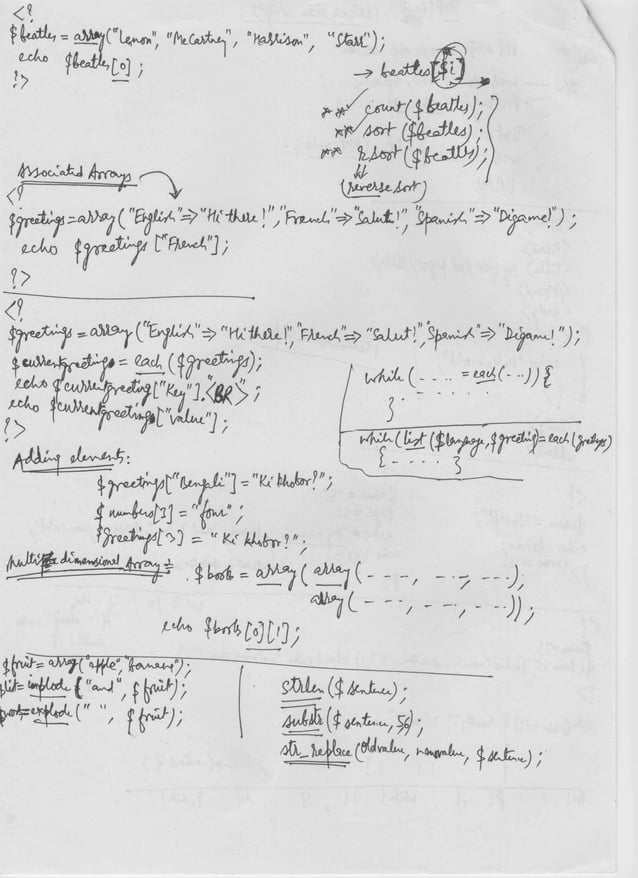 <?
$beatles = array("Lenon", "McCartney", "Harrison", "Starr");
echo $beatles[0];
?>
→ beatles[$i]
** count($beatles);
** sort($beatles);
** rsort($beatles);
(reverse sort)
Associated Arrays
<?
$greetings=array("English"=>"Hi there!","French"=>"Salut!","Spanish"=>"Digame!");
echo $greetings["French"];
?>
<?
$greetings = array("English"=>"Hi there!,"French"=>"Salut!,"Spanish"=>"Digame!");
$currentgreeting = each($greetings);
echo $currentgreeting["Key"].<BR>;
echo $currentgreeting["value"];
?>
while (.... = each(...)) {
}.......
while(list($language,$greeting)=each(greetings)
{..... }
Adding elements:
$greetings["Bengali"]="Ki khobor?";
$numbers[3] = "four";
$greetings[3] = "Ki khobor?";
Multi dimensional Array:
$books = array(array(---, ---, ---),
array(---, ---, ---));
echo $books[0][1];
$fruit=array("apple","banana");
=implode("and", $fruit);
=explode(" ", $fruit);
strlen($sentence);
substr($sentence,5,);
str_replace(oldvalue, newvalue, $sentence);